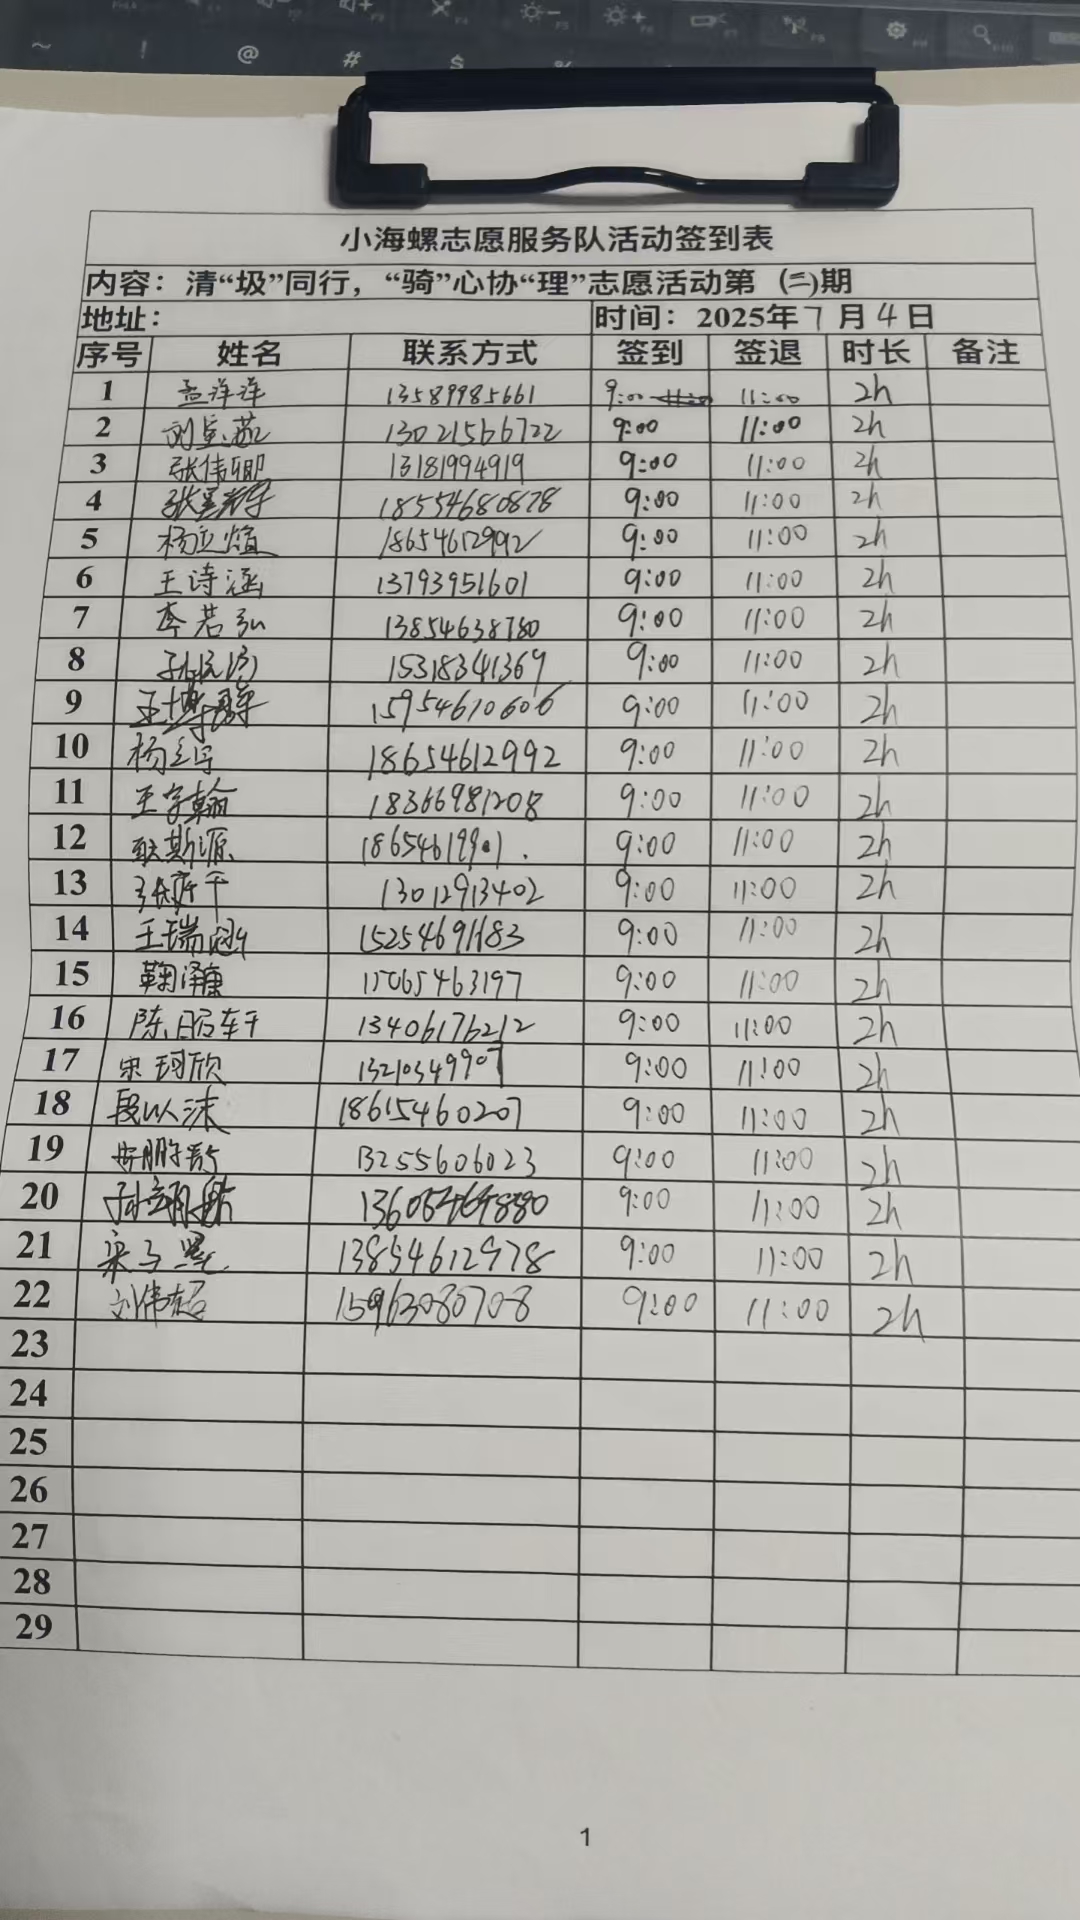 小海螺志愿服务队活动签到表
内容：清“圾”同行，“骑”心协“理”志愿活动第（二）期
地址： 时间：2025年7月4日
序号 姓名 联系方式 签到 签退 时长 备注
1 孟洋洋 13589985661 9:00 11:00 2h
2 13021566722 9:00 11:00 2h
3 张伟卿 13181994919 9:00 11:00 2h
4 18554680878 9:00 11:00 2h
5 杨立煊 18654612992 9:00 11:00 2h
6 王诗涵 13793951601 9:00 11:00 2h
7 李若弘 13854638780 9:00 11:00 2h
8 15318341369 9:00 11:00 2h
9 王博群 15954610606 9:00 11:00 2h
10 杨立宇 18654612992 9:00 11:00 2h
11 王宇翰 18366981208 9:00 11:00 2h
12 耿斯源 9:00 11:00 2h
13 13012913402 9:00 11:00 2h
14 王瑞涵 15254691183 9:00 11:00 2h
15 鞠泽康 15065463197 9:00 11:00 2h
16 陈昭轩 13406176212 9:00 11:00 2h
17 宋珂欣 13210349907 9:00 11:00 2h
18 段以沫 18615460207 9:00 11:00 2h
19 13255606023 9:00 11:00 2h
20 9:00 11:00 2h
21 13854612978 9:00 11:00 2h
22 刘伟超 15963080708 9:00 11:00 2h
23
24
25
26
27
28
29
1